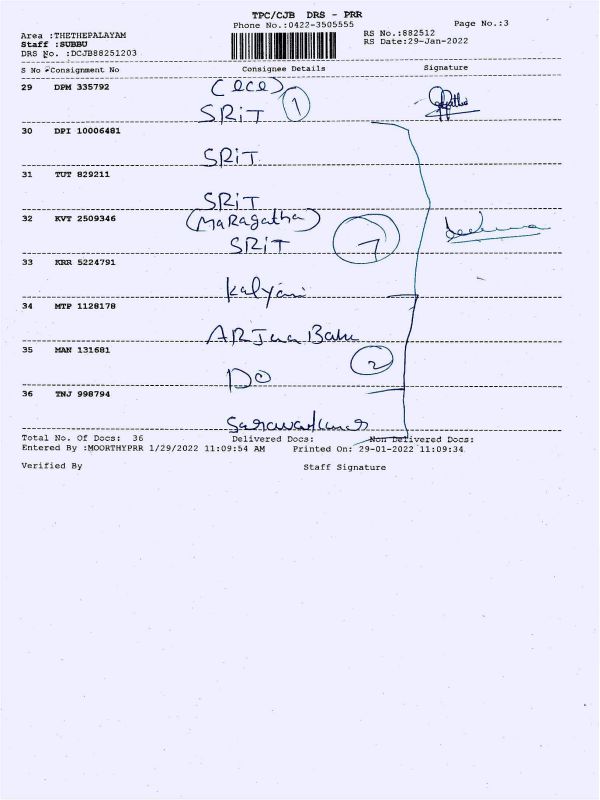 TPC/CJB DRS - PRR
Phone No.:0422-3505555
Page No.:3
Area :THETHEPALAYAM
RS No.:882512
Staff :SUBBU
RS Date:29-Jan-2022
DRS No. :DCJB88251203
S No Consignment No Consignee Details Signature
29 DPM 335792 (ece)
SRiT 1
30 DPI 10006481
SRiT
31 TUT 829211
SRiT
32 KVT 2509346 (Maragatha)
SRiT 7
33 KRR 5224791
Kalyani
34 MTP 1128178
ARJun Babu
35 MAN 131681 2
DO
36 TNJ 998794
Saravankumar
Total No. Of Docs: 36 Delivered Docs: Non Delivered Docs:
Entered By :MOORTHYPRR 1/29/2022 11:09:54 AM Printed On: 29-01-2022 11:09:34
Verified By Staff Signature